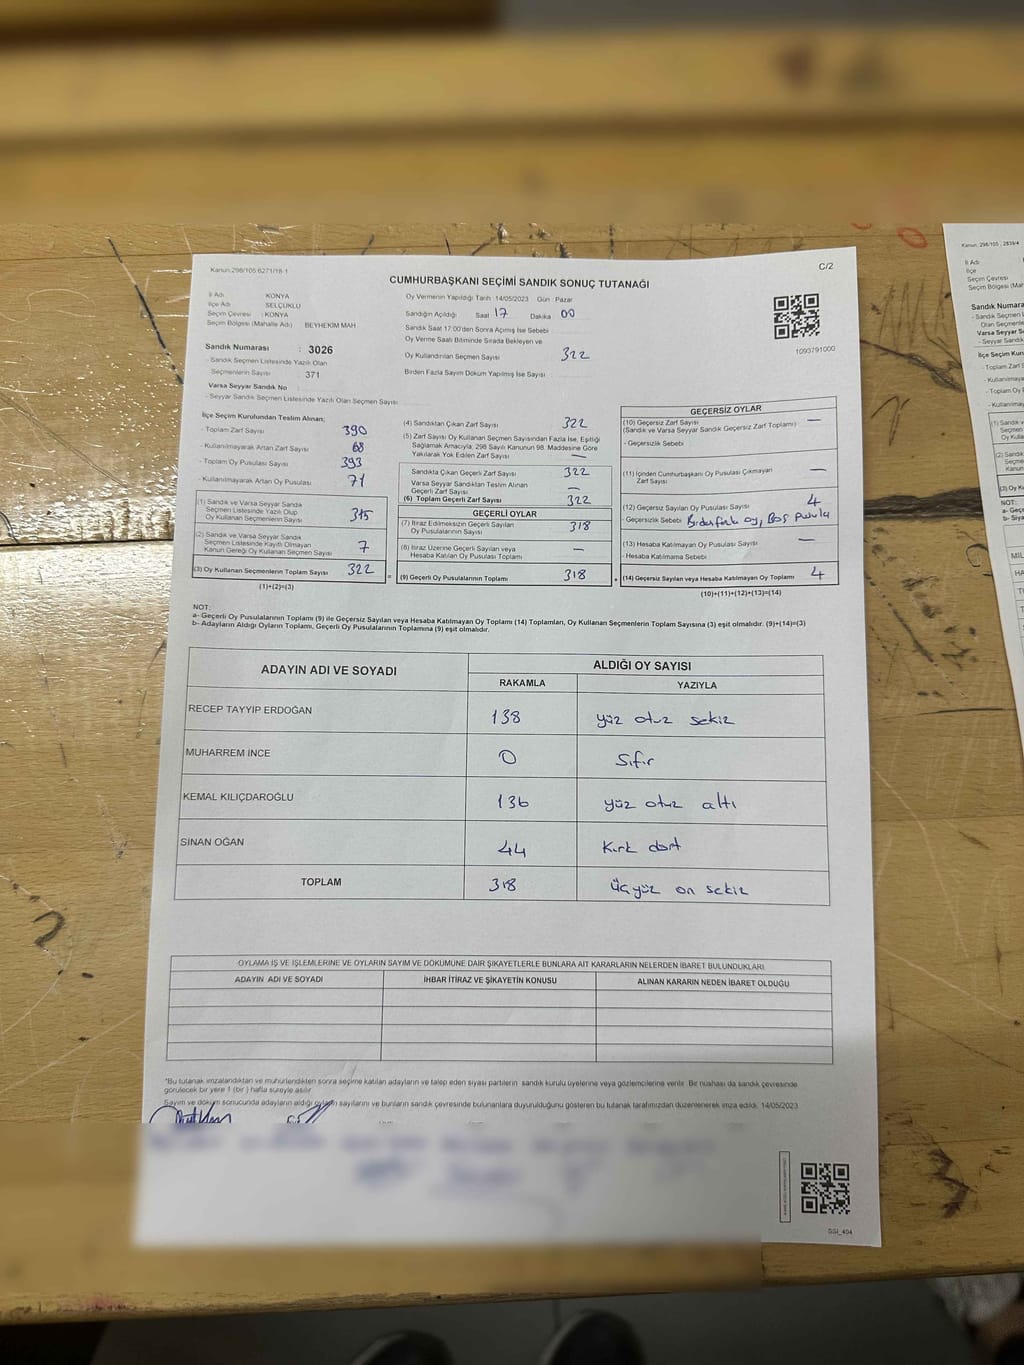 Kanun:298/105 6271/18-1
C/2
CUMHURBAŞKANI SEÇİMİ SANDIK SONUÇ TUTANAĞI
İl Adı KONYA
İlçe Adı SELÇUKLU
Seçim Çevresi : KONYA
Seçim Bölgesi (Mahalle Adı) BEYHEKİM MAH
Sandık Numarası : 3026
- Sandık Seçmen Listesinde Yazılı Olan
Seçmenlerin Sayısı 371
Varsa Seyyar Sandık No :
- Seyyar Sandık Seçmen Listesinde Yazılı Olan Seçmen Sayısı
Oy Vermenin Yapıldığı Tarih :14/05/2023 Gün : Pazar
Sandığın Açıldığı Saat 17 Dakika 00
Sandık Saat 17:00'den Sonra Açılmış İse Sebebi
Oy Verme Saati Bitiminde Sırada Bekleyen ve
Oy Kullandırılan Seçmen Sayısı 322
Birden Fazla Sayım Döküm Yapılmış İse Sayısı
1093791000
İlçe Seçim Kurulundan Teslim Alınan;
- Toplam Zarf Sayısı 390
- Kullanılmayarak Artan Zarf Sayısı 68
- Toplam Oy Pusulası Sayısı 393
- Kullanılmayarak Artan Oy Pusulası 71
(1) Sandık ve Varsa Seyyar Sandık
Seçmen Listesinde Yazılı Olup
Oy Kullanan Seçmenlerin Sayısı 315
(2) Sandık ve Varsa Seyyar Sandık
Seçmen Listesinde Kayıtlı Olmayan
Kanun Gereği Oy Kullanan Seçmen Sayısı 7
(3) Oy Kullanan Seçmenlerin Toplam Sayısı 322
(1)+(2)=(3)
(4) Sandıktan Çıkan Zarf Sayısı 322
(5) Zarf Sayısı Oy Kullanan Seçmen Sayısından Fazla İse, Eşitliği
Sağlamak Amacıyla; 298 Sayılı Kanunun 98. Maddesine Göre
Yakılarak Yok Edilen Zarf Sayısı —
Sandıkta Çıkan Geçerli Zarf Sayısı 322
Varsa Seyyar Sandıktan Teslim Alınan
Geçerli Zarf Sayısı —
(6) Toplam Geçerli Zarf Sayısı 322
GEÇERLİ OYLAR
(7) İtiraz Edilmeksizin Geçerli Sayılan
Oy Pusulalarının Sayısı 318
(8) İtiraz Üzerine Geçerli Sayılan veya
Hesaba Katılan Oy Pusulası Toplamı —
= (9) Geçerli Oy Pusulalarının Toplamı 318
GEÇERSİZ OYLAR
(10) Geçersiz Zarf Sayısı —
(Sandık ve Varsa Seyyar Sandık Geçersiz Zarf Toplamı)
- Geçersizlik Sebebi
(11) İçinden Cumhurbaşkanı Oy Pusulası Çıkmayan —
Zarf Sayısı
(12) Geçersiz Sayılan Oy Pusulası Sayısı 4
- Geçersizlik Sebebi Birden fazla oy, Boş pusula
(13) Hesaba Katılmayan Oy Pusulası Sayısı —
- Hesaba Katılmama Sebebi
+ (14) Geçersiz Sayılan veya Hesaba Katılmayan Oy Toplamı 4
(10)+(11)+(12)+(13)=(14)
NOT:
a- Geçerli Oy Pusulalarının Toplamı (9) ile Geçersiz Sayılan veya Hesaba Katılmayan Oy Toplamı (14) Toplamları, Oy Kullanan Seçmenlerin Toplam Sayısına (3) eşit olmalıdır. (9)+(14)=(3)
b- Adayların Aldığı Oyların Toplamı, Geçerli Oy Pusulalarının Toplamına (9) eşit olmalıdır.
ADAYIN ADI VE SOYADI ALDIĞI OY SAYISI
RAKAMLA YAZIYLA
RECEP TAYYİP ERDOĞAN 138 yüz otuz sekiz
MUHARREM İNCE 0 Sıfır
KEMAL KILIÇDAROĞLU 136 yüz otuz altı
SİNAN OĞAN 44 Kırk dört
TOPLAM 318 Üçyüz on sekiz
OYLAMA İŞ VE İŞLEMLERİNE VE OYLARIN SAYIM VE DÖKÜMÜNE DAİR ŞİKAYETLERLE BUNLARA AİT KARARLARIN NELERDEN İBARET BULUNDUKLARI
ADAYIN ADI VE SOYADI İHBAR İTİRAZ VE ŞİKAYETİN KONUSU ALINAN KARARIN NEDEN İBARET OLDUĞU
*Bu tutanak imzalandıktan ve mühürlendikten sonra seçime katılan adayların ve talep eden siyasi partilerin sandık kurulu üyelerine veya gözlemcilerine verilir. Bir nüshası da sandık çevresinde
görülecek bir yere 1 (bir) hafta süreyle asılır.
Sayım ve döküm sonucunda adayların aldığı oyların sayılarını ve bunların sandık çevresinde bulunanlara duyurulduğunu gösteren bu tutanak tarafımızdan düzenlenerek imza edildi. 14/05/2023
SSI_404
Kanun: 298/105 , 2839/4
İl Adı
İlçe
Seçim Çevresi
Seçim Bölgesi (Mah
Sandık Numarası